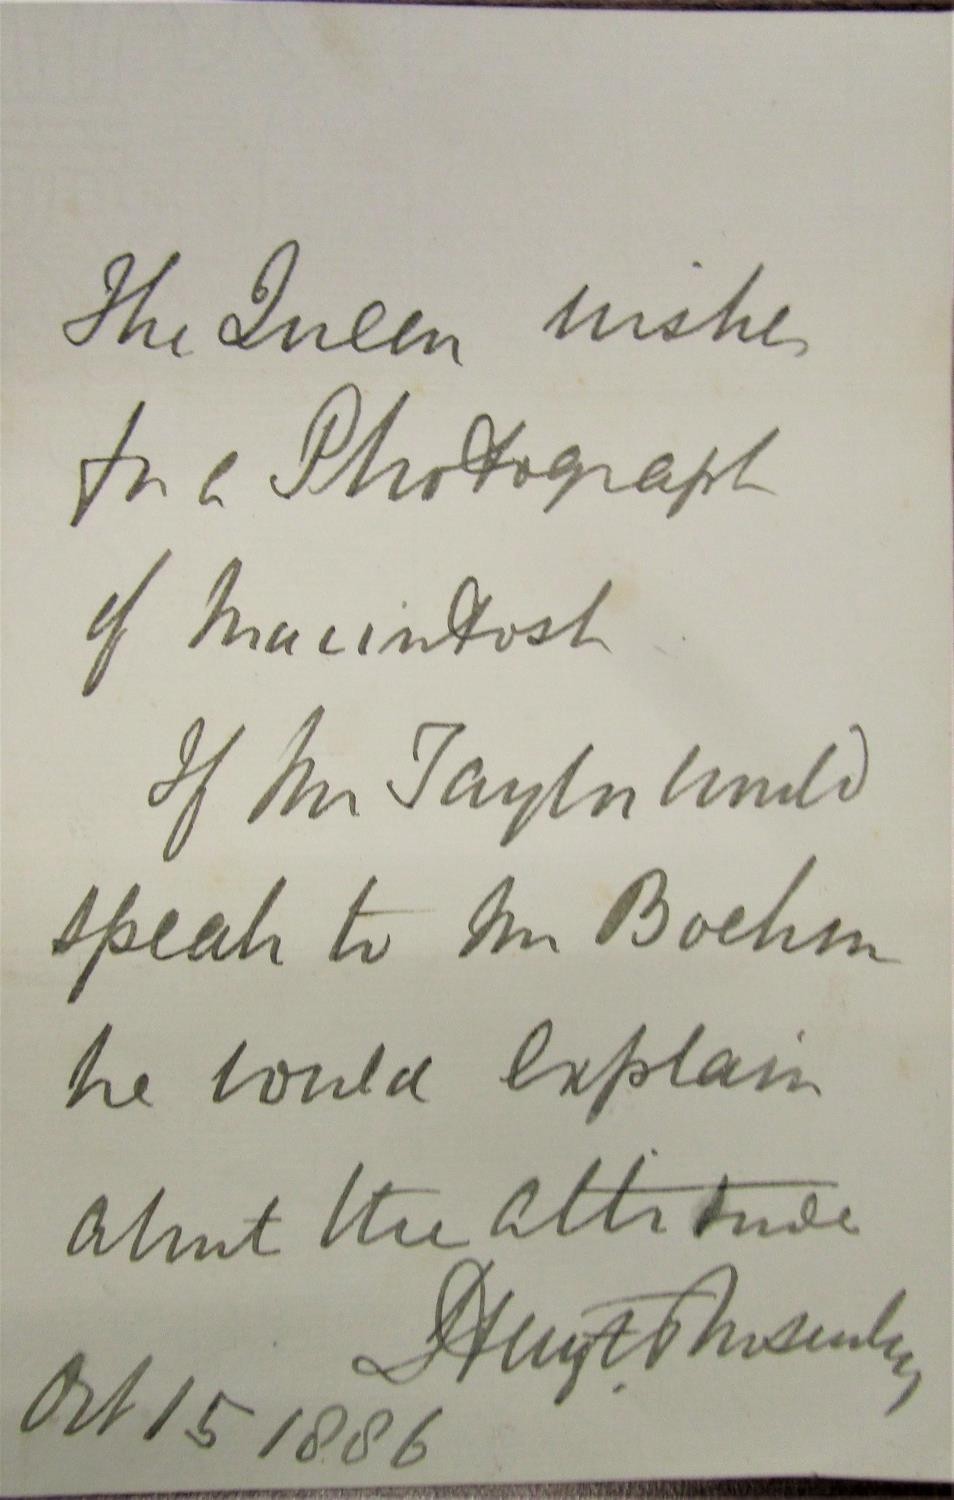 The Queen wishes
for a Photograph
of Macintosh
If Mr Taylor would
speak to Mr Boehm
he would explain
about the attitude
Henry F Ponsonby
Oct 15 1886